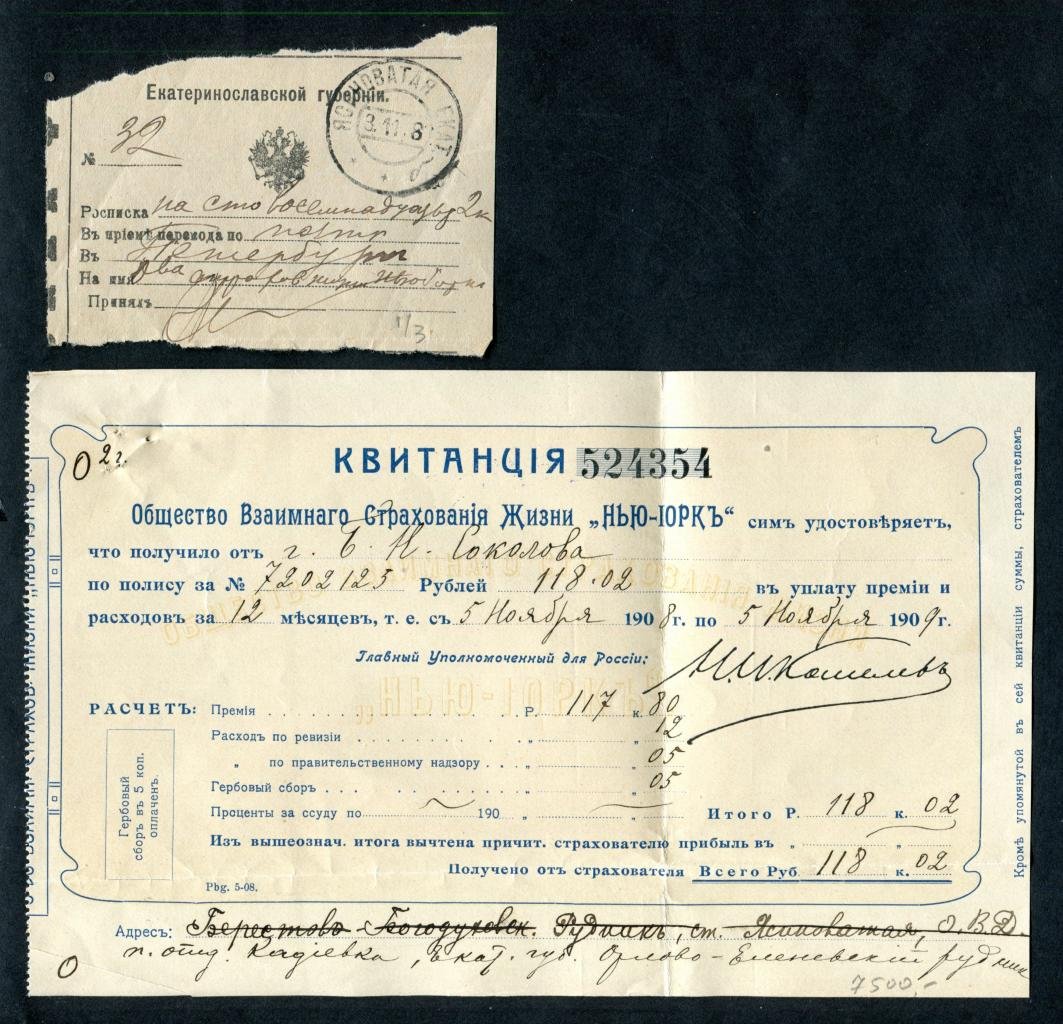 Екатеринославской губерніи.
ЯСИНОВАТАЯ ЕКАТ.
3.11.8
№ 32
Росписка на сто восемнадцать 2к
Въ пріемѣ перевода по почтѣ
Въ Петербург
На имя
Принялъ
1/3
КВИТАНЦІЯ 524354
0 2 г.
Общество Взаимнаго Страхованія Жизни „НЬЮ-ІОРКЪ“ симъ удостовѣряетъ,
что получило отъ г. Б. Н. Соколова
по полису за № 7202125 Рублей 118.02 въ уплату преміи и
расходовъ за 12 мѣсяцевъ, т. е. съ 5 Ноября 1908 г. по 5 Ноября 1909 г.
Главный Уполномоченный для Россіи:
РАСЧЕТЪ: Премія Р. 117 к. 80
Расходъ по ревизіи „ „ 12
„ по правительственному надзору „ „ 05
Гербовый сборъ „ „ 05
Проценты за ссуду по 190 „ „ Итого Р. 118 к. 02
Изъ вышеознач. итога вычтена причит. страхователю прибыль въ „ „
Получено отъ страхователя Всего Руб 118 к. 02
Гербовый
сборъ въ 5 коп.
оплаченъ.
Pbg. 5-08.
Кромѣ упомянутой въ сей квитанціи суммы, страхователемъ
Адресъ: Берестовъ-Богодуховск. Рудникъ, ст. Ясиноватая, Э.В.Д.
п. отд. Кадіевка, Екат. губ. Орлово-Еленевскій рудник
0
7500,-